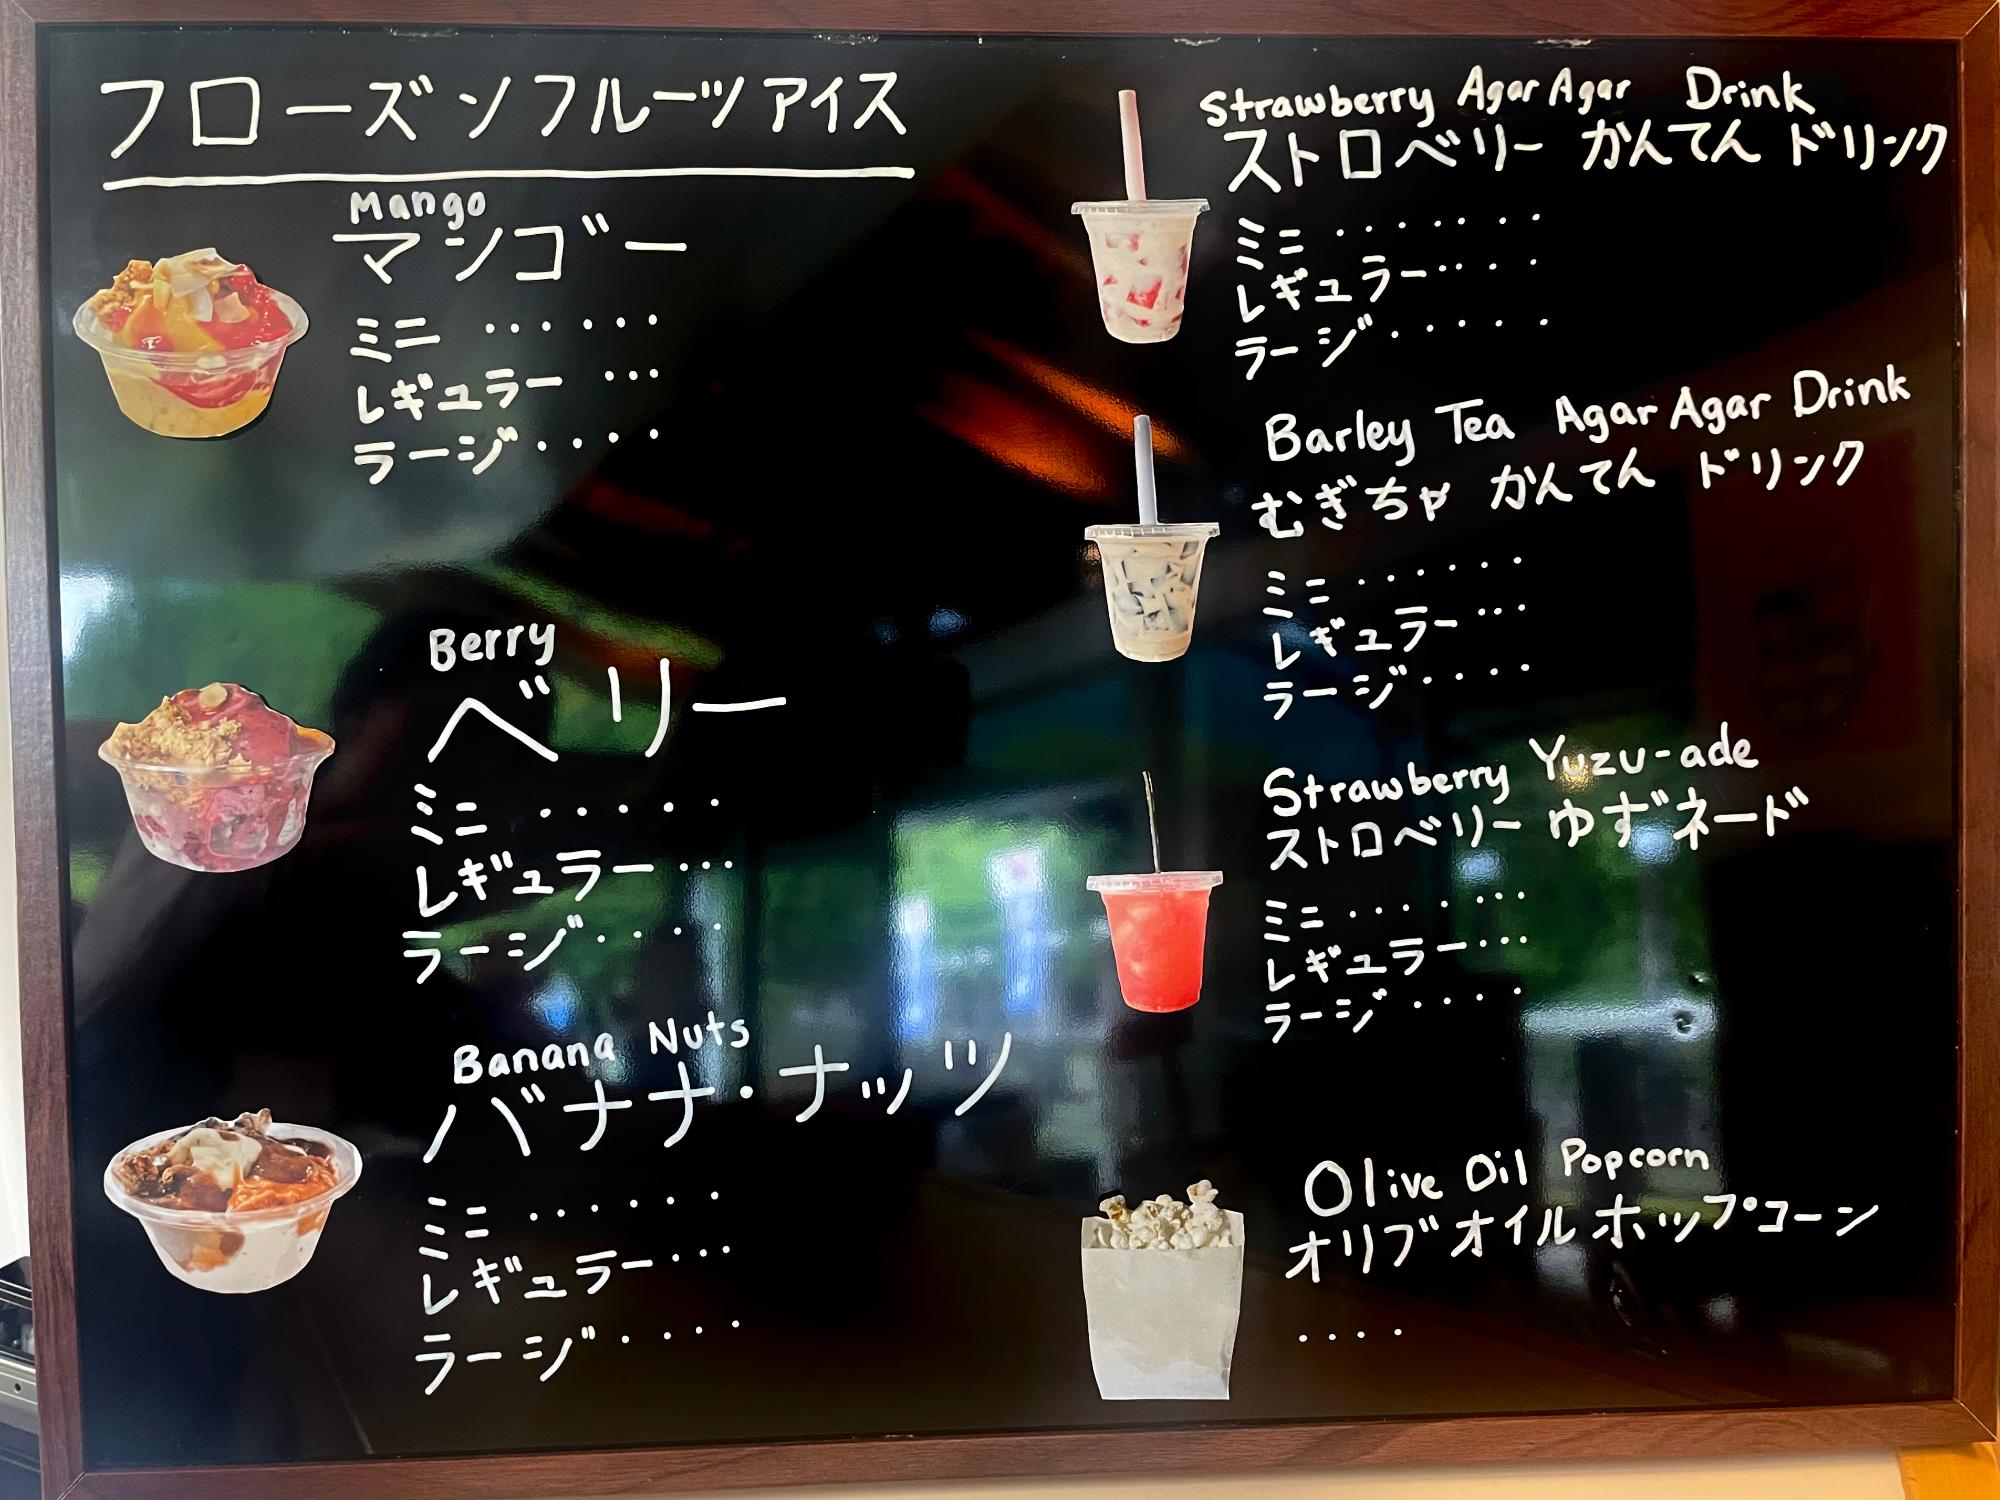 フローズンフルーツアイス
Mango
マンゴー
ミニ ......
レギュラー ...
ラージ ....
Berry
ベリー
ミニ .....
レギュラー ...
ラージ ....
Banana Nuts
バナナ・ナッツ
ミニ ......
レギュラー ...
ラージ ....
Strawberry Agar Agar Drink
ストロベリー かんてん ドリンク
ミニ .......
レギュラー ....
ラージ .....
Barley Tea Agar Agar Drink
むぎちゃ かんてん ドリンク
ミニ ......
レギュラー ...
ラージ ....
Strawberry Yuzu-ade
ストロベリー ゆずネード
ミニ .......
レギュラー ...
ラージ ....
Olive Oil Popcorn
オリブオイルホップコーン
....